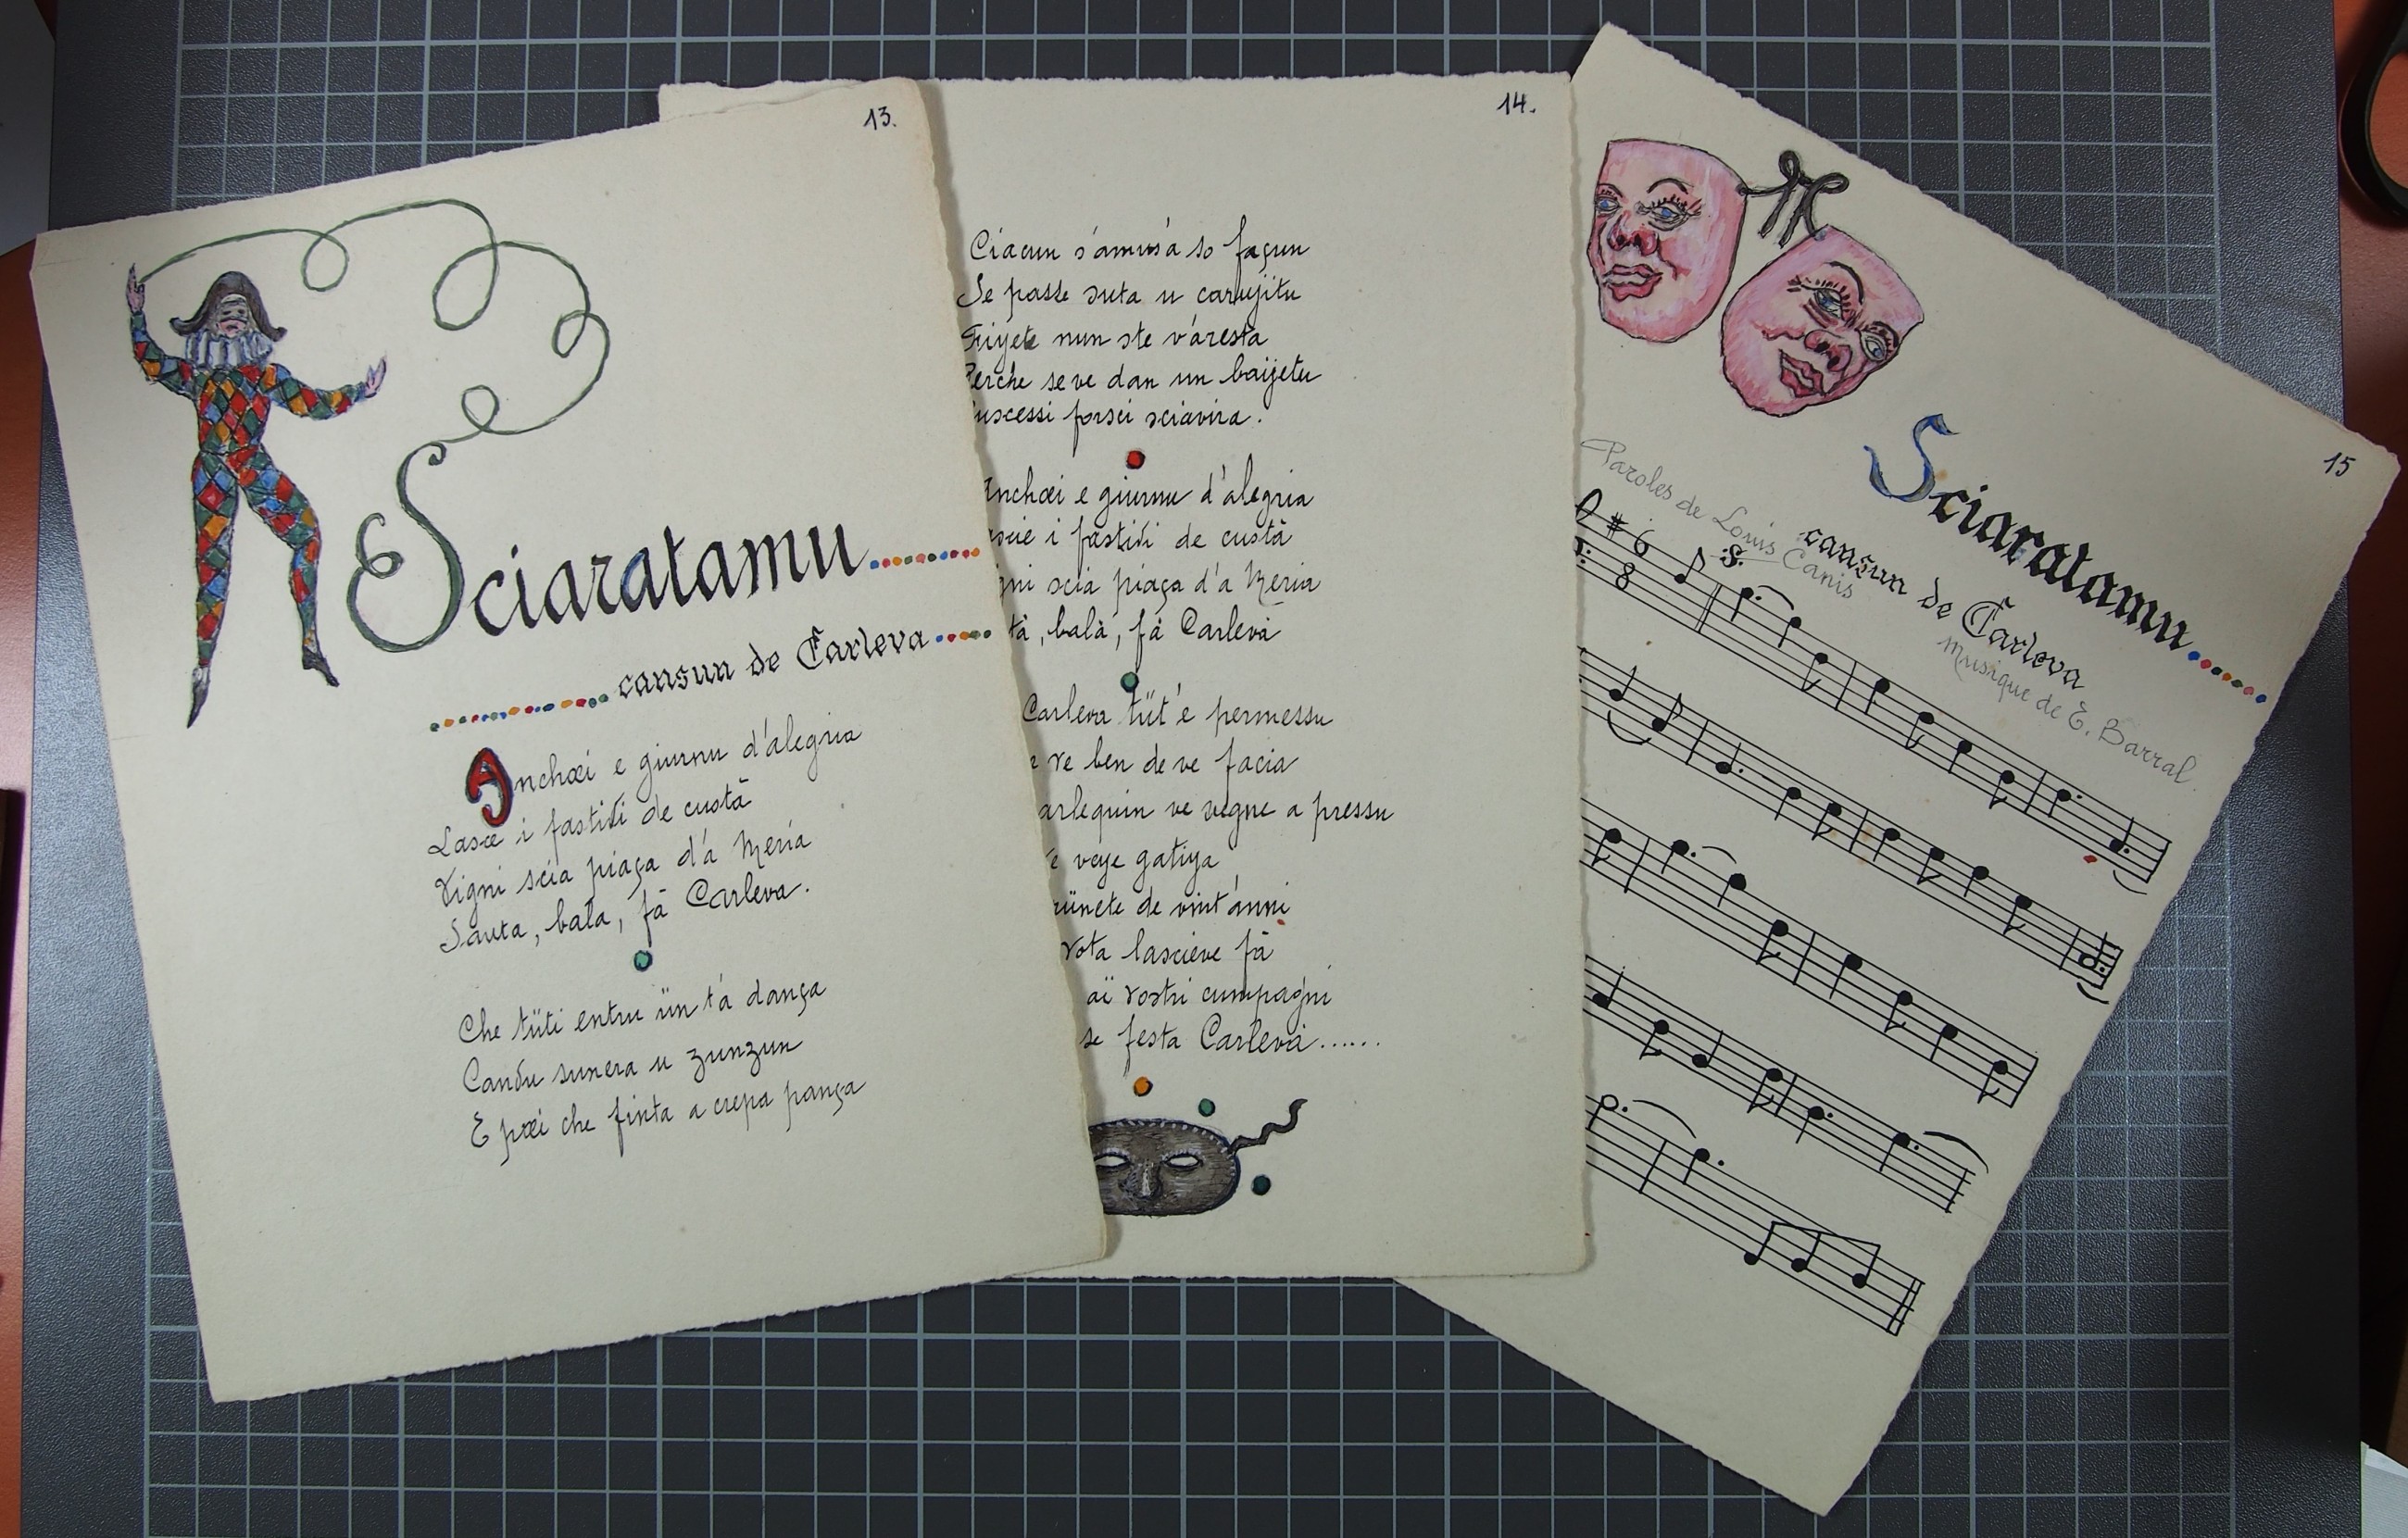 13.
Sciaratamu
cansun de Carleva
Anchœi e giurnu d'alegria
Lasce i fastidi de custà
Vigni scia piaça d'a Meria
Sauta, bala, fà Carleva.
Che tüti entru ün t'a dança
Candu sunera u zunzun
E pœi che finta a crepa pança
14.
Ciacun s'amus'a so façun
Se passe suta u carrujitu
nun ste v'aresta
Perche se ve dan un baijetu
forsci sciavira.
Anchœi e giurnu d'alegria
i fastidi de custà
scia piaça d'a Meria
balà, fà Carlevà
Carleva tüt'è permessu
ve ben de ve facia
ve vegne a pressu
veye gatiya
de vint'anni
vota lascieve fà
ai vostri cumpagni
se festa Carlevà......
15
Sciaratamu
cansun de Carleva
Paroles de Louis Canis
Musique de E. Barral.
6
8